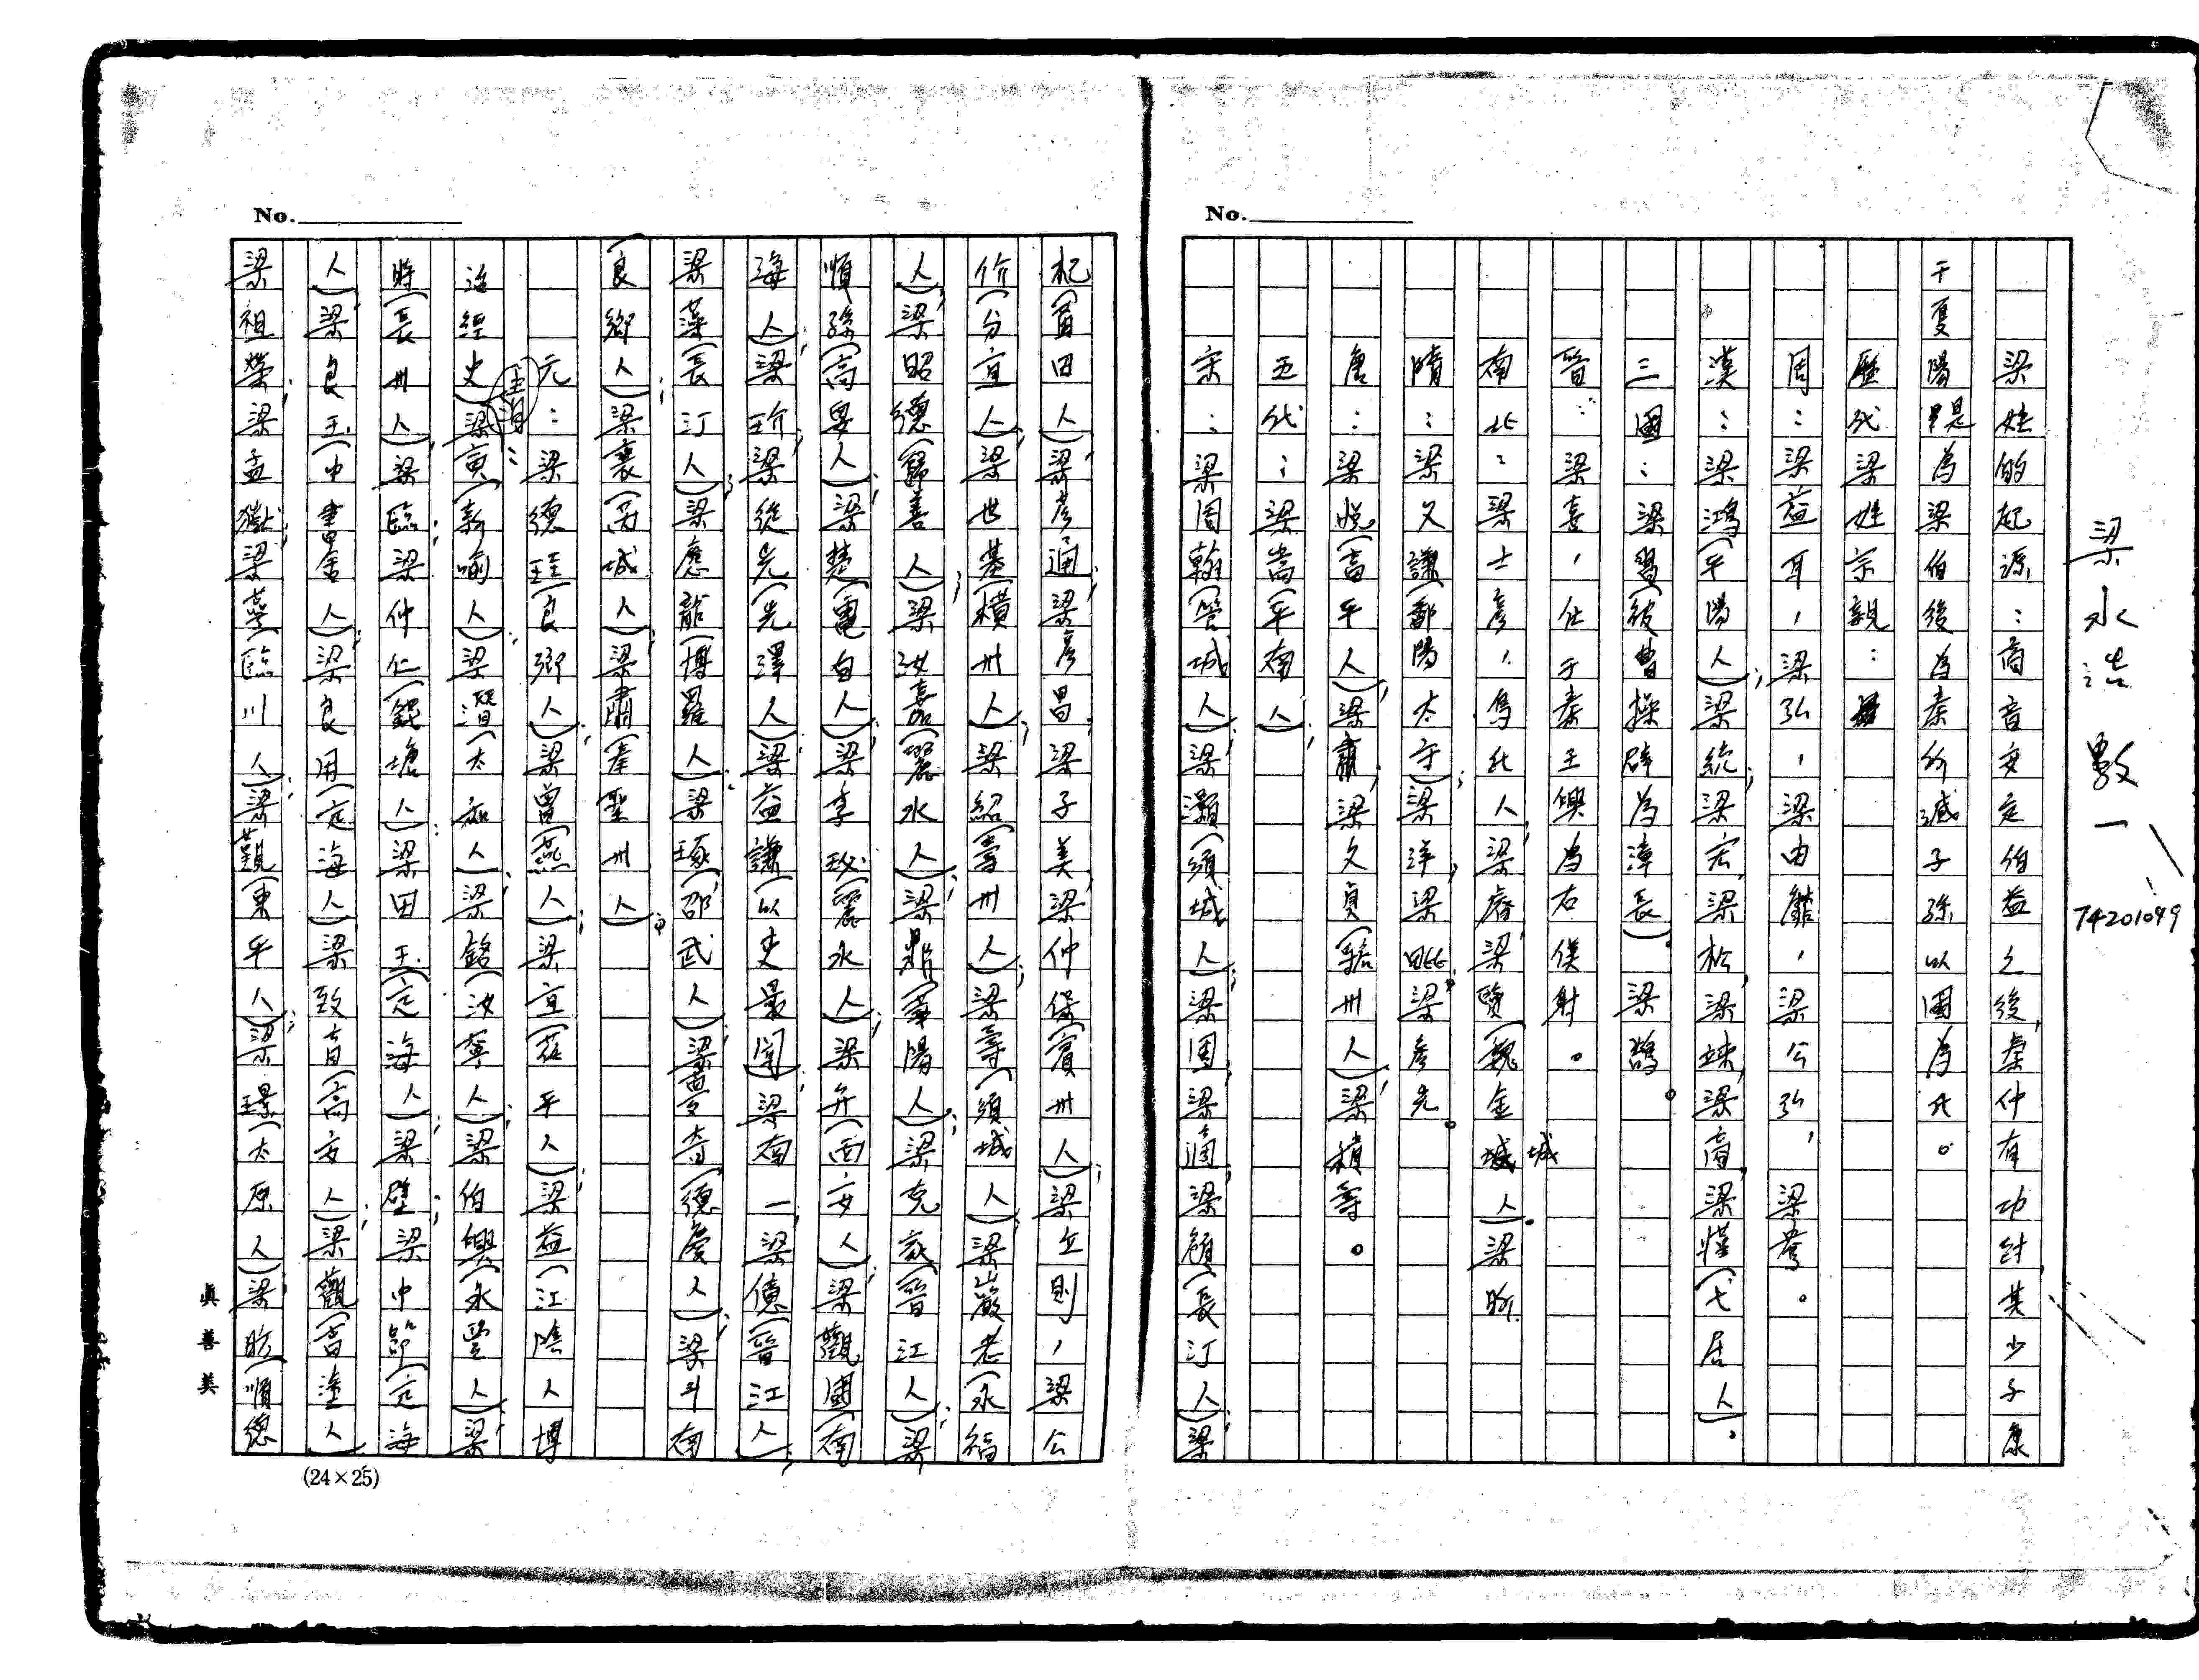 梁永浩 數一
74201049
No.
梁姓的起源:商音安定伯益之後,秦仲有功封其少子康
于夏陽是為梁伯後為秦所滅子孫以國為氏。
歷代梁姓宗親:
周:梁益耳,梁弘,梁由靡,梁公弘,梁嬰。
漢:梁鴻(平陽人);梁統;梁宏,梁松,梁竦,梁商,梁慬(弋居人)。
三國:梁習(彼曹操辟為漳長)。梁鵠。
晉:梁喜,仕于秦王興為右僕射。
南北:梁士彥,烏氏人,梁睿,梁覽(魏金城人)。梁昕
城
隋:梁文謙(鄱陽太守);梁洋,梁毗。梁彥光。
唐:梁悅(富平人),梁肅,梁文貞(虢州人),梁積壽。
五代:梁嵩(平南人);
宋:梁周翰(管城人);梁灝(須城人);梁固;梁適;梁顏(長汀人);梁
No.
杞(莆田人);梁彥通;梁彥昌,梁子美,梁仲保(賓州人);梁立則,梁公
竹(分宜人);梁世基(橫州人);梁紹(壽州人);梁壽(須城人);梁巖老(永福
人);梁昭德(歸善人);梁汝嘉(麗水人);梁鼎(華陽人);梁克家(晉江人);梁
順孫(高要人);梁楚(電白人);梁季珌(麗水人);梁弁(西安人);梁觀國(南
海人);梁玠;梁從光(光澤人);梁益謙(以吏最聞);梁南一;梁億(晉江人);
梁藻(長汀人);梁應龍(博羅人);梁琢(邵武人);梁夢奇(德慶人);梁斗南
(良鄉人);梁襄(丙城人);梁肅(奉聖州人)。
元:梁德珪(良鄉人);梁曾(燕人);梁宜(茌平人);梁益(江陰人博
治經史);梁寅(新喻人);梁潛(太和人);梁銘(汝寧人);梁伯興(永豐人);梁
時(長州人);梁臨;梁仲仁(錢塘人);梁田玉(定海人);梁壁;梁中節(定海
人);梁良玉(中書舍人);梁良用(定海人);梁致育(高安人);梁觀(當塗人);
梁祖榮;梁孟獄;梁蕚(臨川人);梁觀(東平人);梁璟(太原人);梁昉(順德
(24×25)
真善美